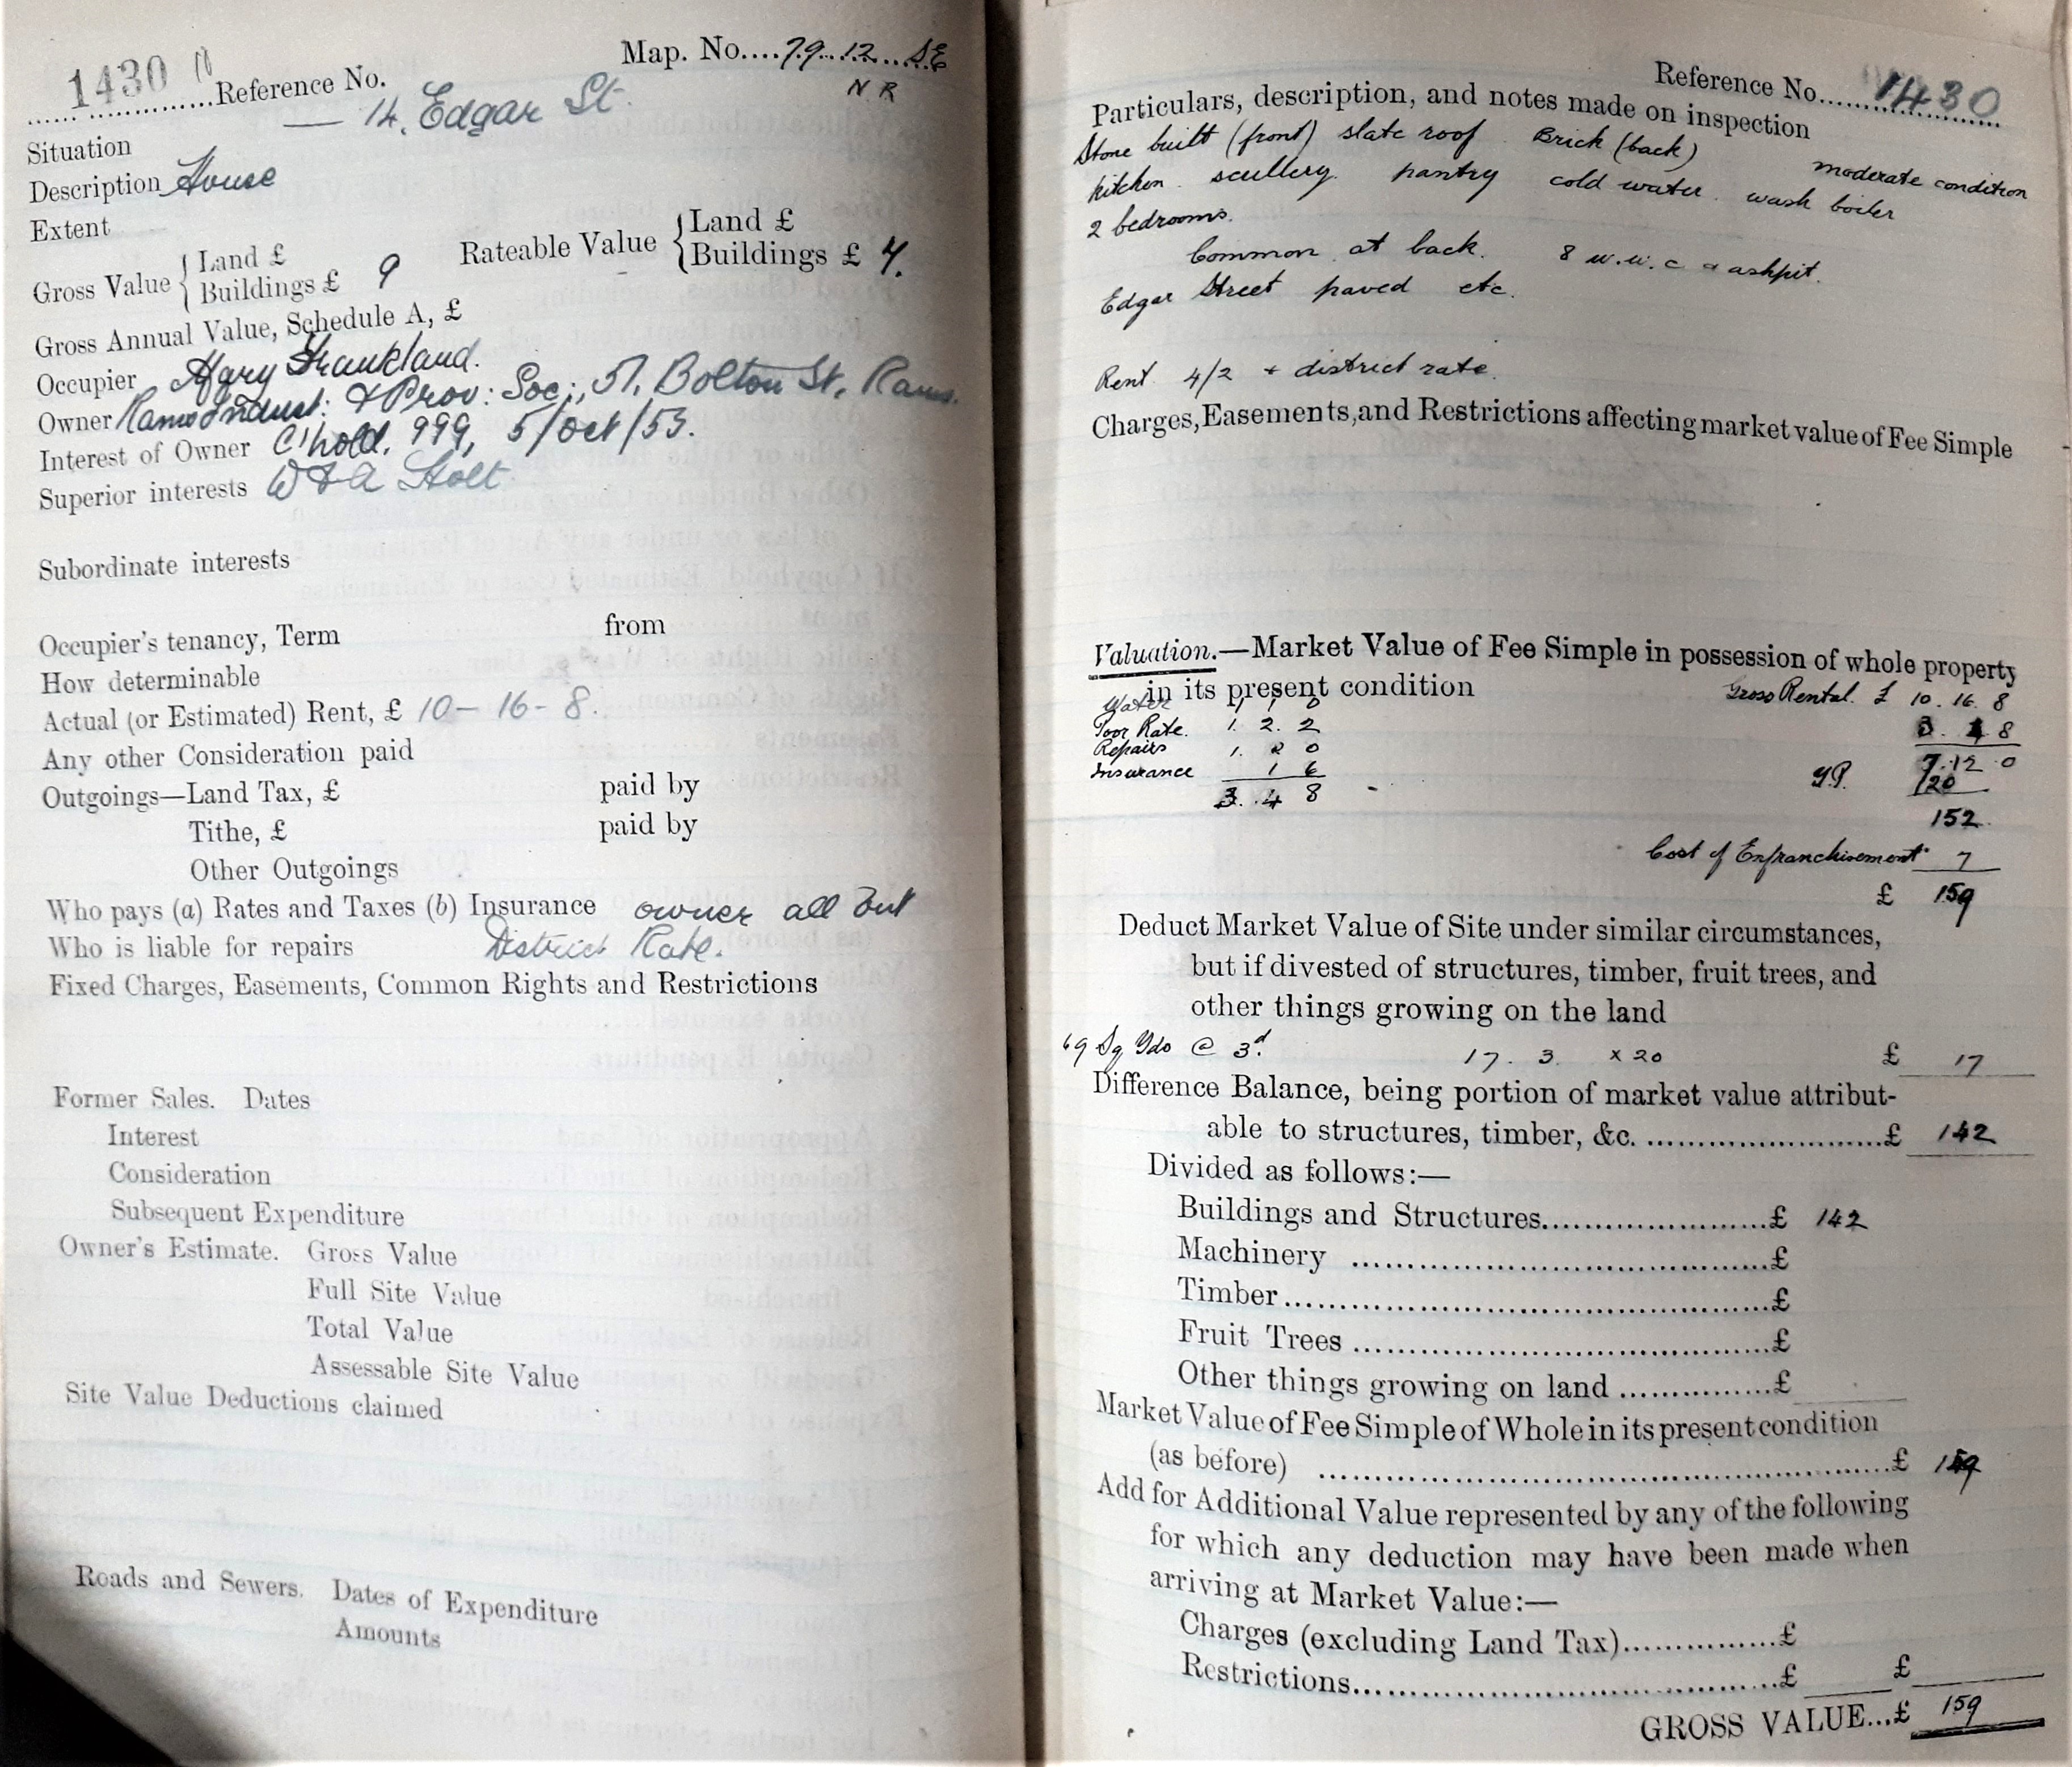 1430
Reference No.
Map. No....79..12...SE
N R
Situation — 14. Edgar St.
Description House
Extent
Gross Value { Land £
Buildings £ 9
Rateable Value { Land £
Buildings £ 7.
Gross Annual Value, Schedule A, £
Occupier Mary Frankland.
Owner Rams Indust: & Prov: Soc:, 57, Bolton St, Rams.
Interest of Owner C'hold, 999, 5/Oct/53.
Superior interests W & A Holt
Subordinate interests
Occupier's tenancy, Term from
How determinable
Actual (or Estimated) Rent, £ 10-16-8.
Any other Consideration paid
Outgoings—Land Tax, £ paid by
Tithe, £ paid by
Other Outgoings
Who pays (a) Rates and Taxes (b) Insurance owner all but
Who is liable for repairs District Rate.
Fixed Charges, Easements, Common Rights and Restrictions
Former Sales. Dates
Interest
Consideration
Subsequent Expenditure
Owner's Estimate. Gross Value
Full Site Value
Total Value
Assessable Site Value
Site Value Deductions claimed
Roads and Sewers. Dates of Expenditure
Amounts
Reference No. 1430
Particulars, description, and notes made on inspection
Stone built (front) slate roof Brick (back) moderate condition
kitchen. scullery. pantry cold water. wash boiler
2 bedrooms.
Common at back. 8 w.w.c & ashpit.
Edgar Street paved etc.
Rent 4/2 + district rate.
Charges, Easements, and Restrictions affecting market value of Fee Simple
Valuation.—Market Value of Fee Simple in possession of whole property
in its present condition
Gross Rental. £ 10. 16. 8
Water 1 0
Poor Rate. 1. 2. 2
3. 4 8
Repairs 1. 0
7.12 0
Insurance 1 6
Y.P. 20
3. 4 8
152
Cost of Enfranchisement 7
£ 159
Deduct Market Value of Site under similar circumstances,
but if divested of structures, timber, fruit trees, and
other things growing on the land
69 Sq Yds @ 3d. 17. 3. x 20 £ 17
Difference Balance, being portion of market value attribut-
able to structures, timber, &c. ........................£ 142
Divided as follows:—
Buildings and Structures.......................£ 142
Machinery ..........................................£
Timber.................................................£
Fruit Trees ..........................................£
Other things growing on land ................£
Market Value of Fee Simple of Whole in its present condition
(as before) ............................................................£ 159
Add for Additional Value represented by any of the following
for which any deduction may have been made when
arriving at Market Value:—
Charges (excluding Land Tax)................£
Restrictions...........................................£ £
GROSS VALUE...£ 159